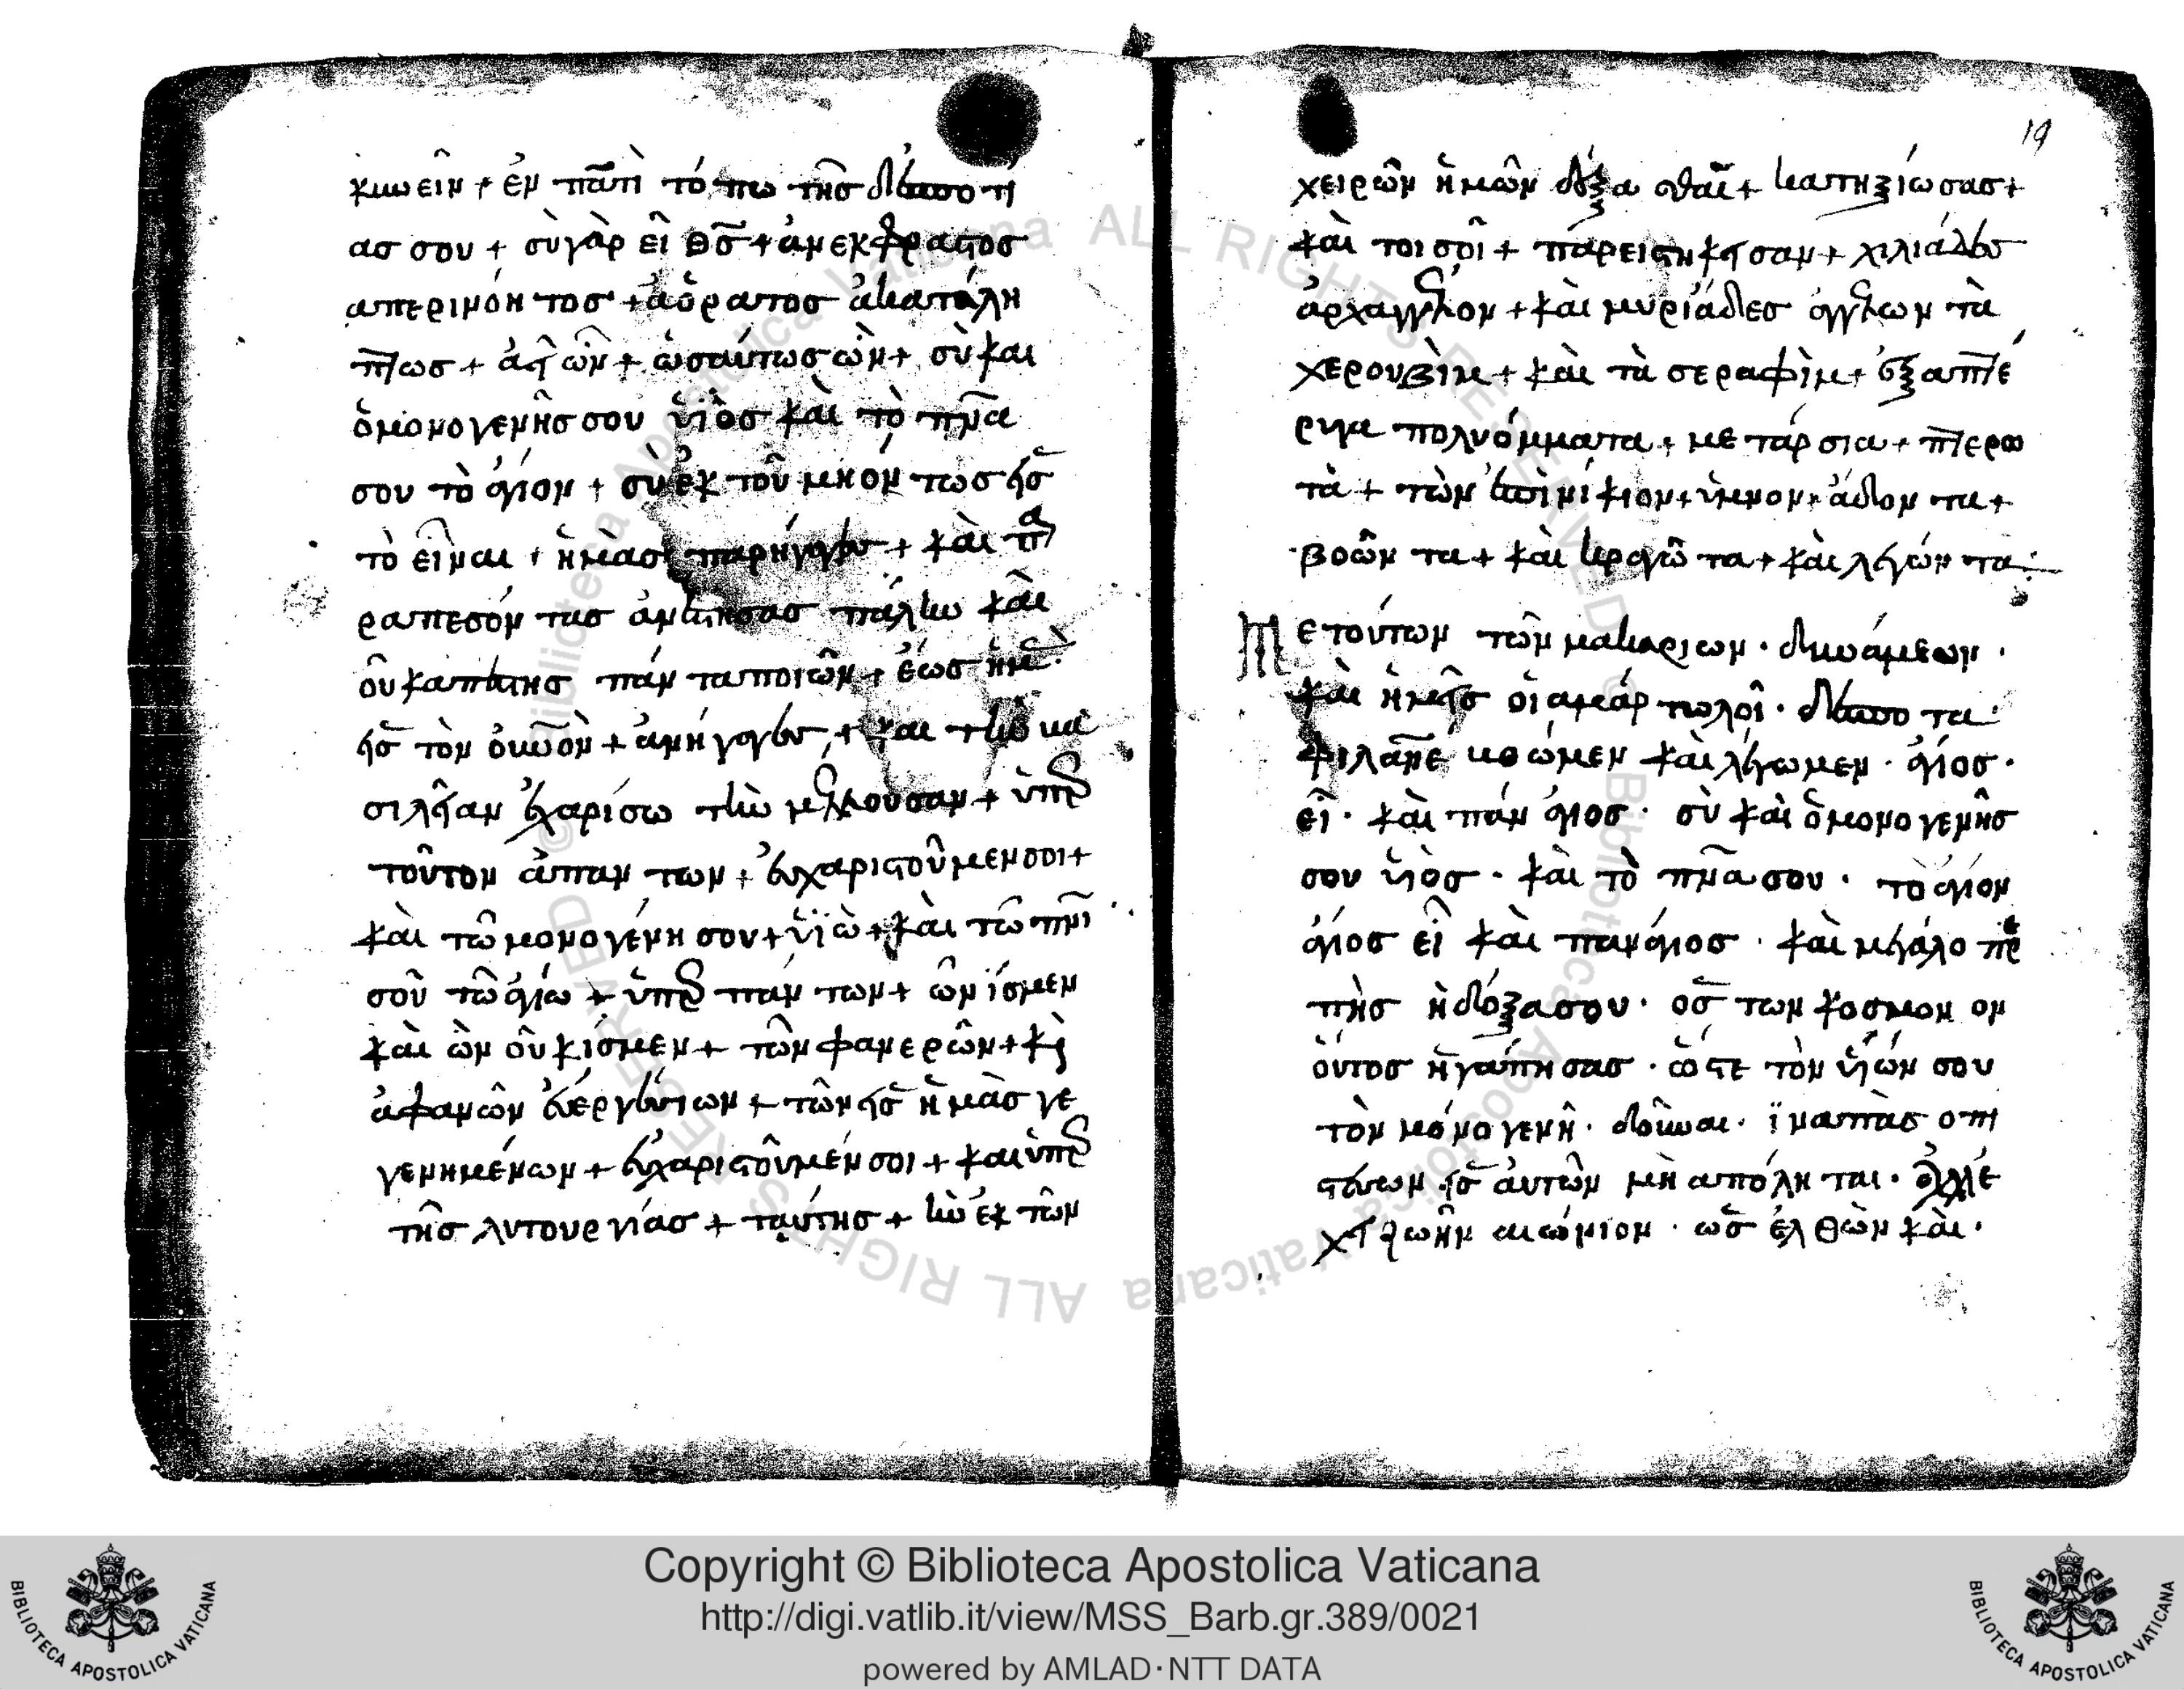 κυνεῖν + ἐν παντὶ τόπω τῆσ δεσποτεί
ασ σου + σὺ γὰρ εἶ θσ + ἀνεκφραστοσ
απερινόητοσ + ἀόρατοσ ἀκατάλη
πτωσ + ἀεὶ ὢν + ὡσαύτωσ ὢν + σὺ και
ὁμονογενῆσ σου ὑιὸσ και τὸ πνα
σου τὸ ἅγιον + σὺ ἐκ τοῦ μὴ όντωσ εἰσ
τὸ εἶναι + ἡμὰσ παρήγαγεσ + και πα
ραπεσόντασ ἀνέστησασ πάλιν και
οὐκ απέστησ πάντα ποιῶν + ἕωσ ἡμὰσ
εἰσ τὸν οὐνον + ἀνήγαγεσ + και τὴν βα
σιλείαν ἐχαρίσω τὴν μέλλουσαν + ὑπὲρ
τοῦτον ἀπάντων + ἐυχαριστοῦμεν σοι +
και τῶ μονογένη σου + ὑιῶ + και τῶ πνι
σοῦ τῶ ἁγίω + ὑπὲρ πάντων + ὧν ἴσμεν
και ὧν οὐκ ίσμεν + τῶν φανερῶν + και
ἀφανῶν ἐυεργεσιων + τῶν εἰσ ἡμὰσ γε
γενημένων + ἐυχαριστοῦμέν σοι + και ὑπὲρ
τῆσ λυτουργίασ + ταύτησ + ἣν ἐκ τῶν
19
χειρῶν ἡμῶν δέξασθαι + κατηξίωσασ +
και τοι σοὶ + παρειστήκεισαν + χιλιάδεσ
ἀρχαγγέλον + και μυριάδεσ ἀγγέλων τὰ
χερουβὶμ + και τὰ σεραφὶμ + ἑξαπτέ
ρυγα πολυόμματα + μετάρσια + πτερω
τὰ + τὼν ἐπινίκιον + ὑμνον + ἄδοντα +
βοῶντα + και κεκραγῶτα + και λέγώντα :
Μετούτων τῶν μακαριων · δυνάμεων ·
και ἡμεῖσ οἱ αμαρτωλοὶ · δέσποτα ·
φιλανε βοώμεν και λέγωμεν · ἅγιοσ ·
εἶ · και πανάγιοσ · σὺ και ὁμονογενῆσ
σου ὑιὸσ · και τὸ πνα σου · τὸ ἅγιον
ἅγιοσ εἶ και παναγιοσ · και μεγάλο πρε
πὴσ ἡ δόξα σου · οσ των κοσμον ον
όυτοσ ἠγαπησασ · ὥστε τὸν ὑιών σου
τὸν μόνογενῆ · δοῦναι · ϊνα πὰσ ο πι
στεύων εἰσ ἀυτῶν μὴ απόληται · ἀλλέ
χει ζωὴν αιώνιον · ωσ ἐλθὼν και ·
Copyright © Biblioteca Apostolica Vaticana
http://digi.vatlib.it/view/MSS_Barb.gr.389/0021
powered by AMLAD·NTT DATA
BIBLIOTECA APOSTOLICA VATICANA
BIBLIOTECA APOSTOLICA VATICANA